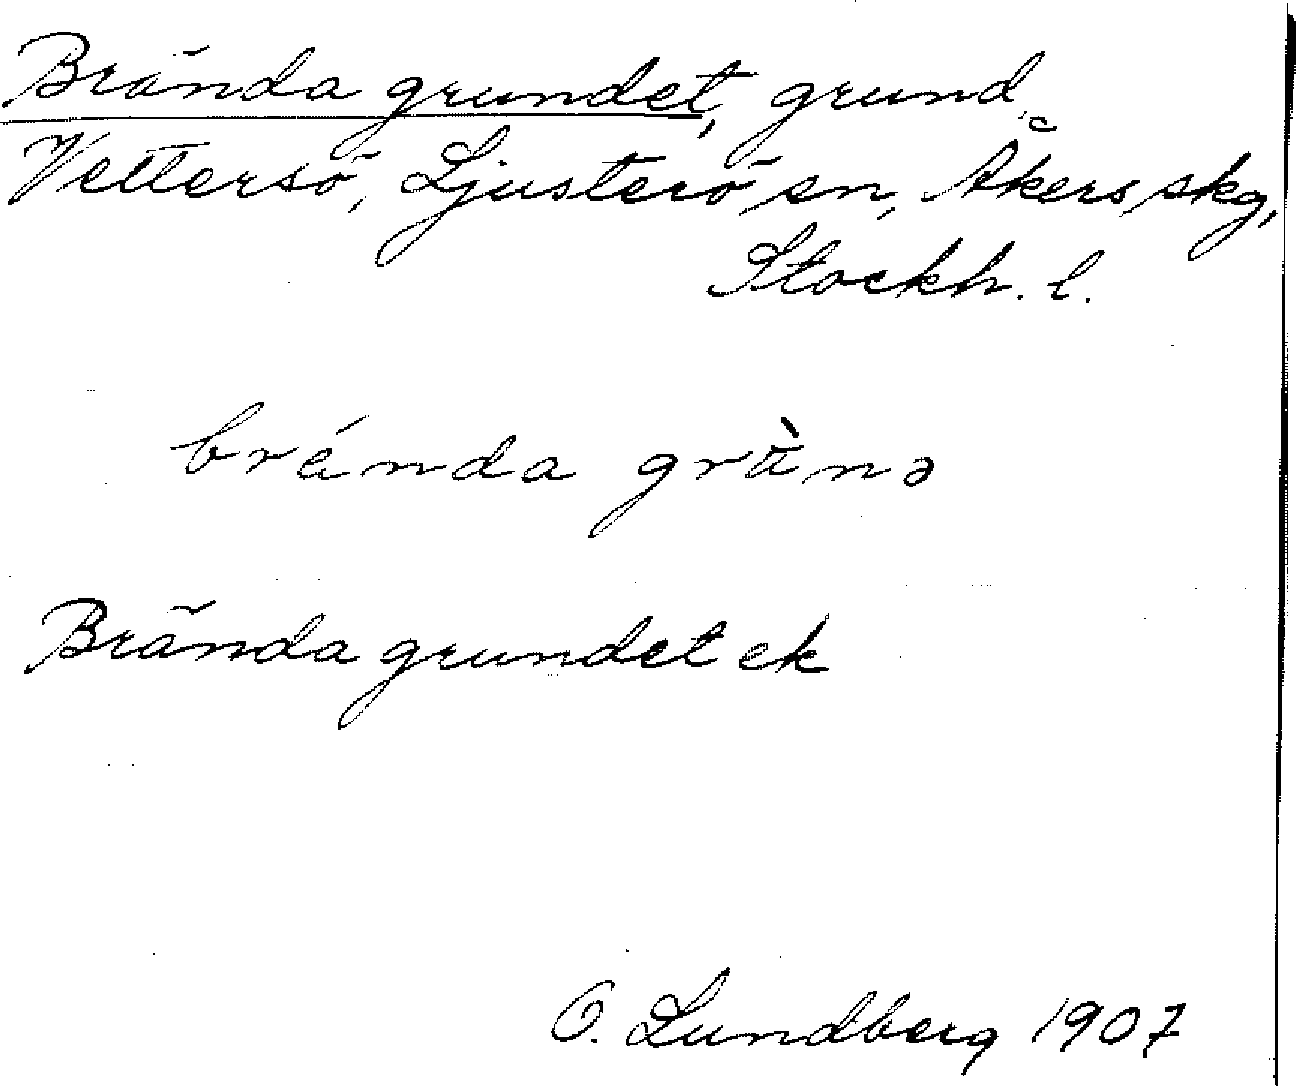 Brända grundet, grund,
Vettersö, Ljusterö sn, Åkers skg,
Stockh. l.
brénda grànə
Brända grundet ek
O. Lundberg 1907